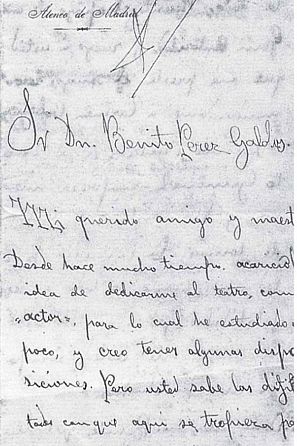 Ateneo de Madrid
Sr Dn. Benito Perez Galdós.
Mi querido amigo y maest
Desde hace mucho tiempo, acarició
idea de dedicarme al teatro, com
"actor", para lo cual he estudiado
poco, y creo tener algunas dispo
siciones. Pero usted sabe las difil
tades con que aqui se tropieza pa